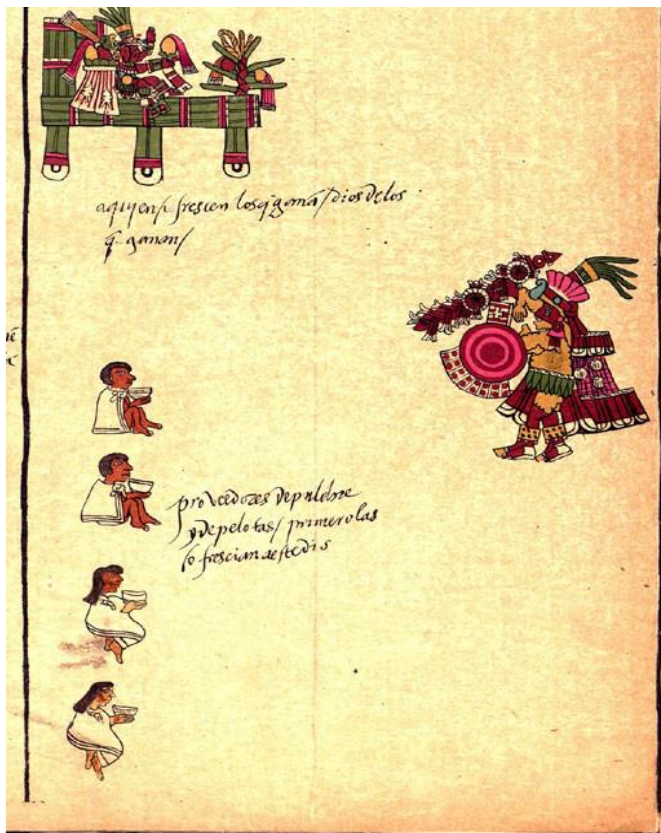 aqui en frescien los q̃ ganã / dios de los
q̃ ganan /
proveedores de pulchre
y de pelotas / primero las
lo frescian a este dis